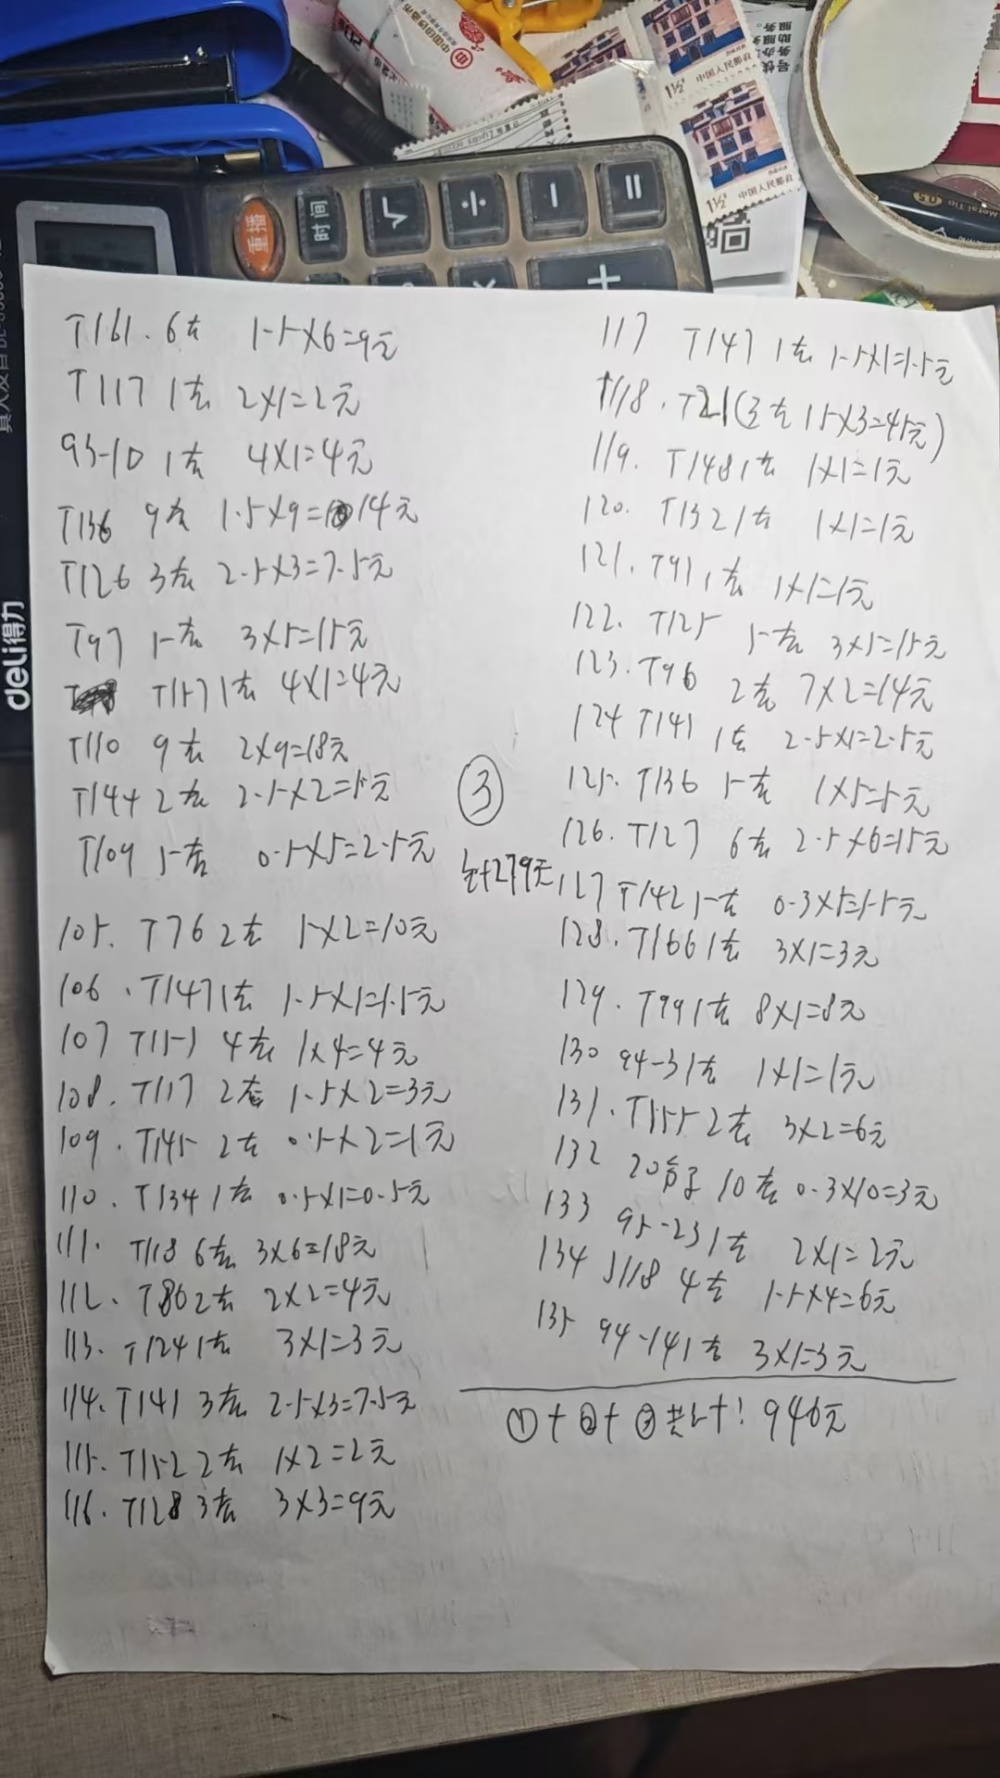 中国人民邮政
1½
中国人民邮政
1½
0.5
Metal Tip
重播
时间
√
÷
−
=
+
deli得力
T161. 6套 1.5×6=9元
T117 1套 2×1=2元
93-10 1套 4×1=4元
T136 9套 1.5×9=14元
T126 3套 2.5×3=7.5元
T97 5套 3×5=15元
T157 1套 4×1=4元
T110 9套 2×9=18元
T144 2套 2.5×2=5元
T109 5套 0.5×5=2.5元
105. T76 2套 5×2=10元
106. T147 1套 1.5×1=1.5元
107 T151 4套 1×4=4元
108. T117 2套 1.5×2=3元
109. T145 2套 0.5×2=1元
110. T134 1套 0.5×1=0.5元
111. T118 6套 3×6=18元
112. T86 2套 2×2=4元
113. T124 1套 3×1=3元
114. T141 3套 2.5×3=7.5元
115. T152 2套 1×2=2元
116. T128 3套 3×3=9元
③
共计279元
117 T147 1套 1.5×1=1.5元
118. T21(3套 15×3=45元)
119. T148 1套 1×1=1元
120. T132 1套 1×1=1元
121. T91 1套 1×1=1元
122. T125 5套 3×5=15元
123. T96 2套 7×2=14元
124 T141 1套 2.5×1=2.5元
125. T136 5套 1×5=5元
126. T127 6套 2.5×6=15元
127 T142 5套 0.3×5=1.5元
128. T166 1套 3×1=3元
129. T99 1套 8×1=8元
130 94-3 1套 1×1=1元
131. T155 2套 3×2=6元
132 20分 10套 0.3×10=3元
133 95-23 1套 2×1=2元
134 J118 4套 1.5×4=6元
135 94-14 1套 3×1=3元
①+②+③共计: 946元